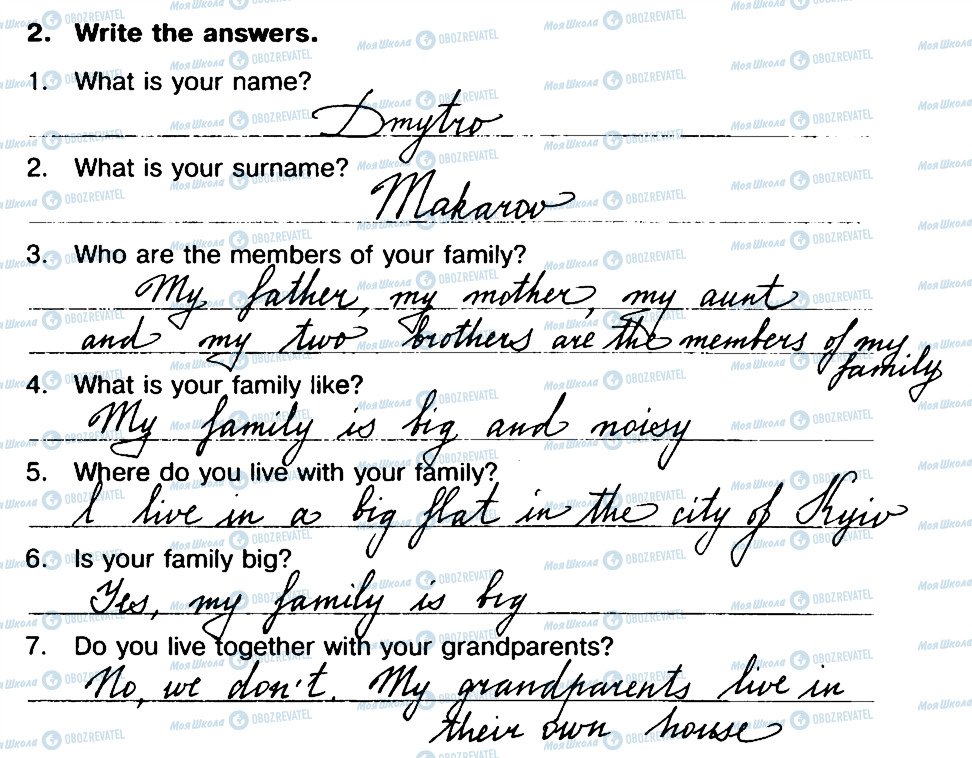 2. Write the answers.
1. What is your name?
Dmytro
2. What is your surname?
Makarov
3. Who are the members of your family?
My father, my mother, my aunt
and my two brothers are the members of my
family
4. What is your family like?
My family is big and noisy
5. Where do you live with your family?
I live in a big flat in the city of Kyiv
6. Is your family big?
Yes, my family is big
7. Do you live together with your grandparents?
No, we don't. My grandparents live in
their own house
Моя Школа OBOZREVATEL